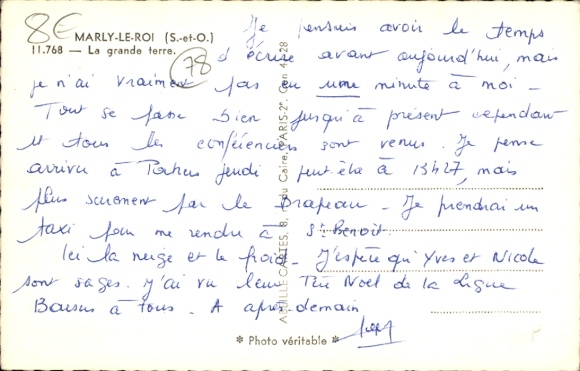 8€
MARLY-LE-ROI (S.-et-O.)
11.768 — La grande terre.
78
Je pensais avoir le temps
d'écrire avant aujourd'hui, mais
je n'ai vraiment pas eu une minute à moi -
Tout se passe bien jusqu'à présent cependant
et tous les conférenciers sont venus. Je pense
arriver à Poitiers jeudi peut-être à 13h27, mais
plus sûrement par le Drapeau - Je prendrai un
taxi pour me rendre à St Benoit
Ici la neige et le froid - J'espère qu'Yves et Nicole
sont sages. J'ai vu leur Père Noël de la Ligue
Baisers à tous. A après-demain
ABEILLE-CARTES, 8, r. du Caire, PARIS-2e. Cen
* Photo véritable *